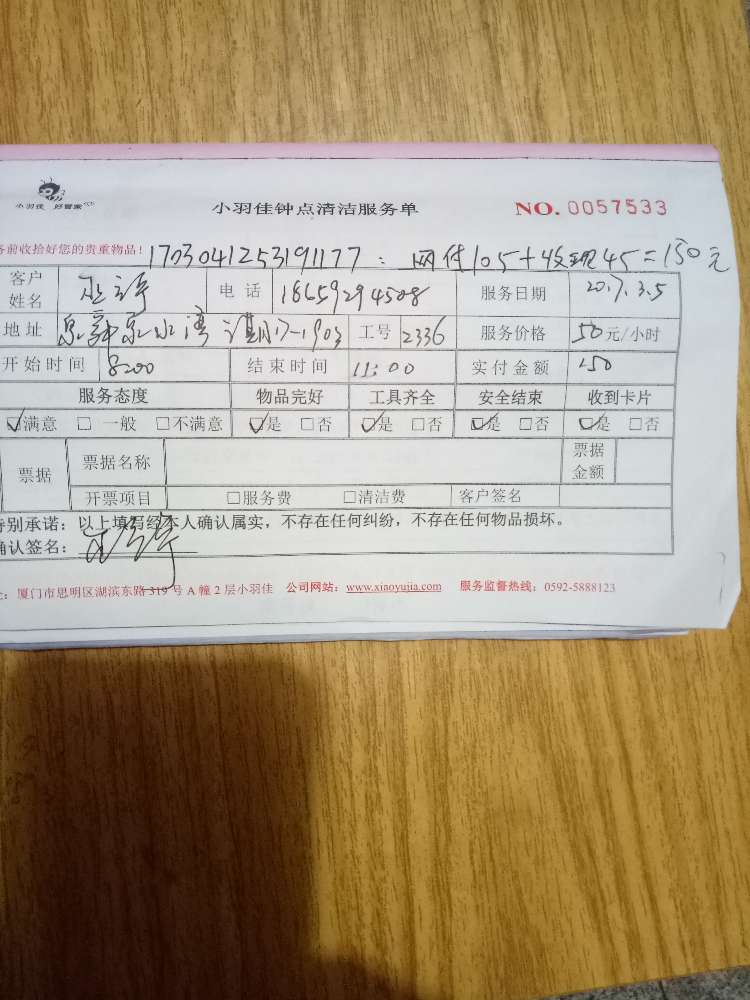 小羽佳 好管家
小羽佳钟点清洁服务单 NO. 0057533
务前收拾好您的贵重物品! 1703041253191177: 网付105+收现45=150元
客户姓名 电话 18659294508 服务日期 2017.3.5
地址 工号 2336 服务价格 50元/小时
开始时间 8:00 结束时间 11:00 实付金额 150
服务态度 物品完好 工具齐全 安全结束 收到卡片
☑满意 □一般 □不满意 ☑是 □否 ☑是 □否 ☑是 □否 ☑是 □否
票据 票据名称 票据金额
开票项目 □服务费 □清洁费 客户签名
特别承诺：以上填写经本人确认属实，不存在任何纠纷，不存在任何物品损坏。
确认签名：
厦门市思明区湖滨东路 319 号 A 幢 2 层小羽佳 公司网站：www.xiaoyujia.com 服务监督热线：0592-5888123